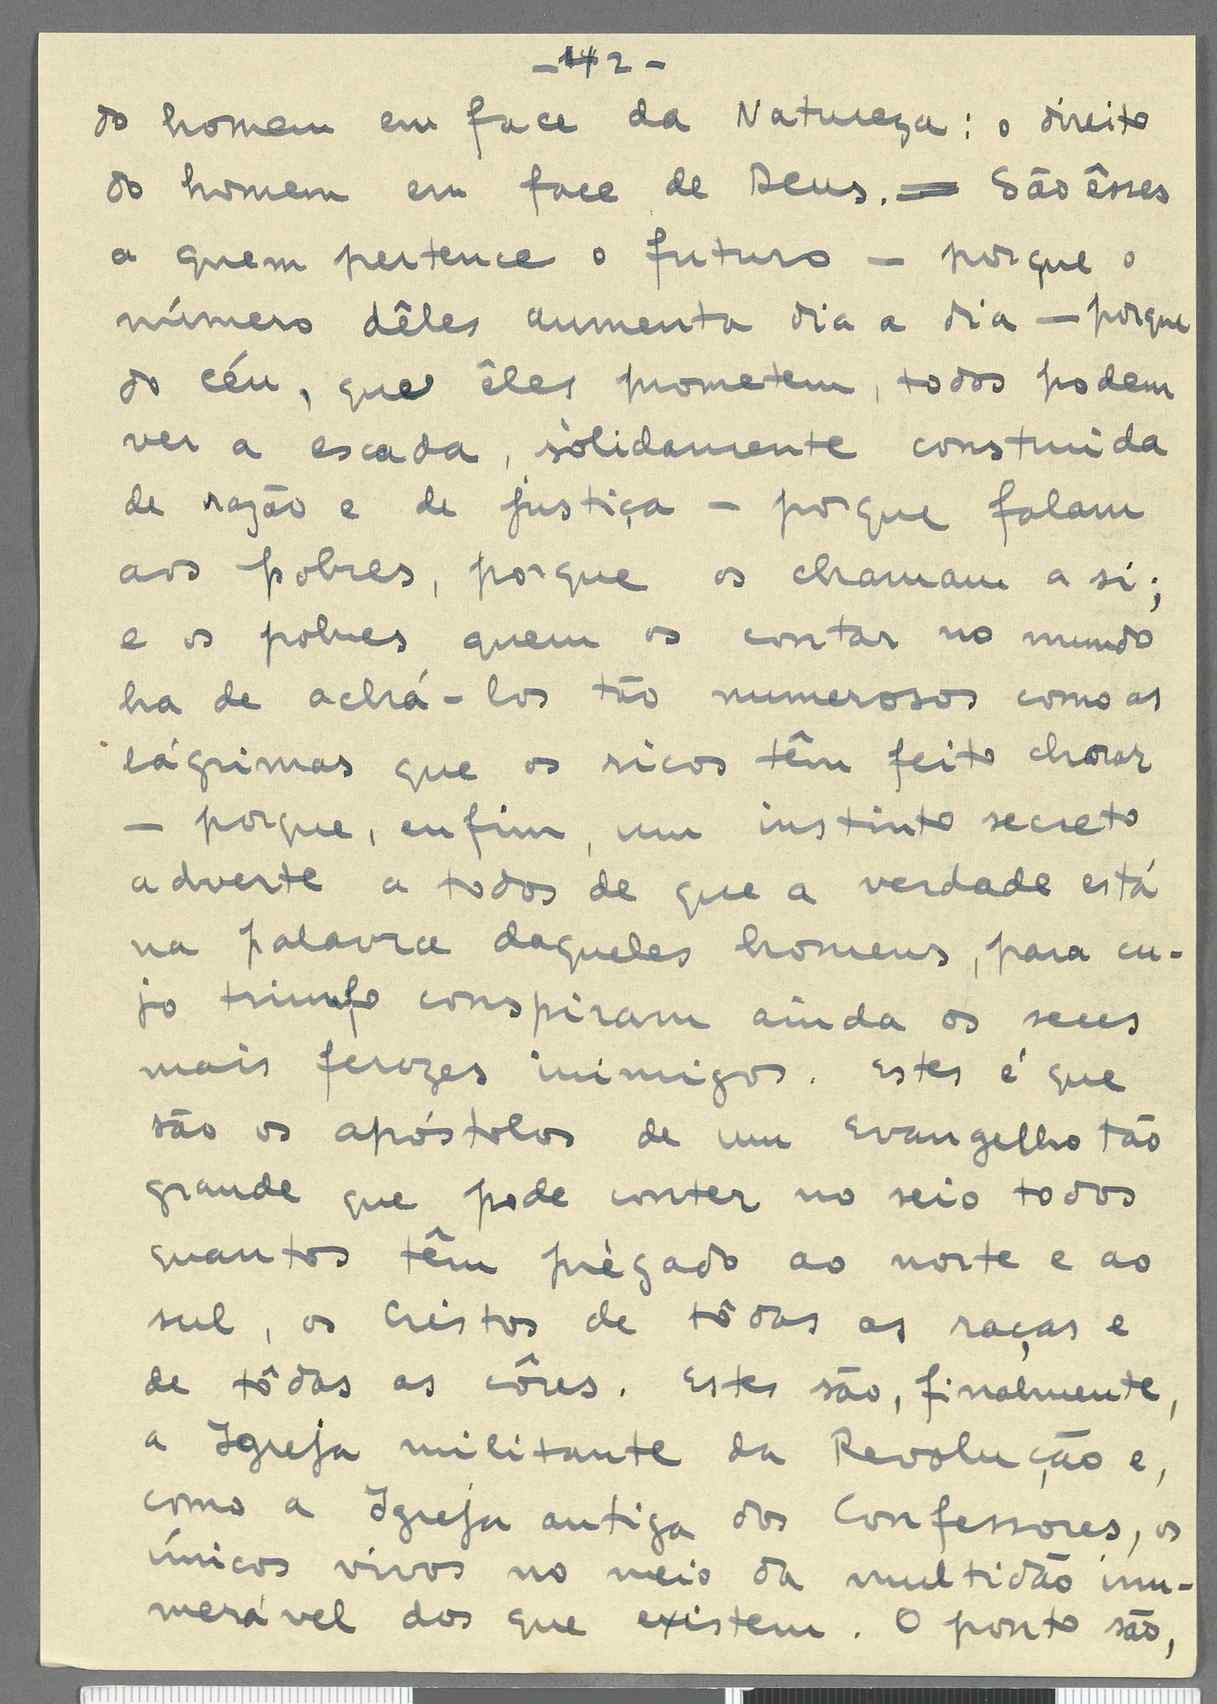 - 142 -
do homem em face da Natureza: o direito
do homem em face de Deus. — São êsses
a quem pertence o futuro — porque o
número dêles aumenta dia a dia — porque
do céu, que êles prometem, todos podem
ver a escada, sòlidamente construida
de razão e de justiça — porque falam
aos pobres, porque os chamam a si;
e os pobres quem os contar no mundo
ha de achá-los tão numerosos como as
lágrimas que os ricos têm feito chorar
— porque, enfim, um instinto secreto
adverte a todos de que a verdade está
na palavra daqueles homens, para cu-
jo triunfo conspiram ainda os seus
mais ferozes inimigos. Estes é que
são os apóstolos de um Evangelho tão
grande que pode conter no seio todos
quantos têm prègado ao norte e ao
sul, os Cristos de tôdas as raças e
de tôdas as côres. Estes são, finalmente,
a Igreja militante da Revolução e,
como a Igreja antiga dos Confessores, os
únicos vivos no meio da multidão inu-
merável dos que existem. O ponto são,